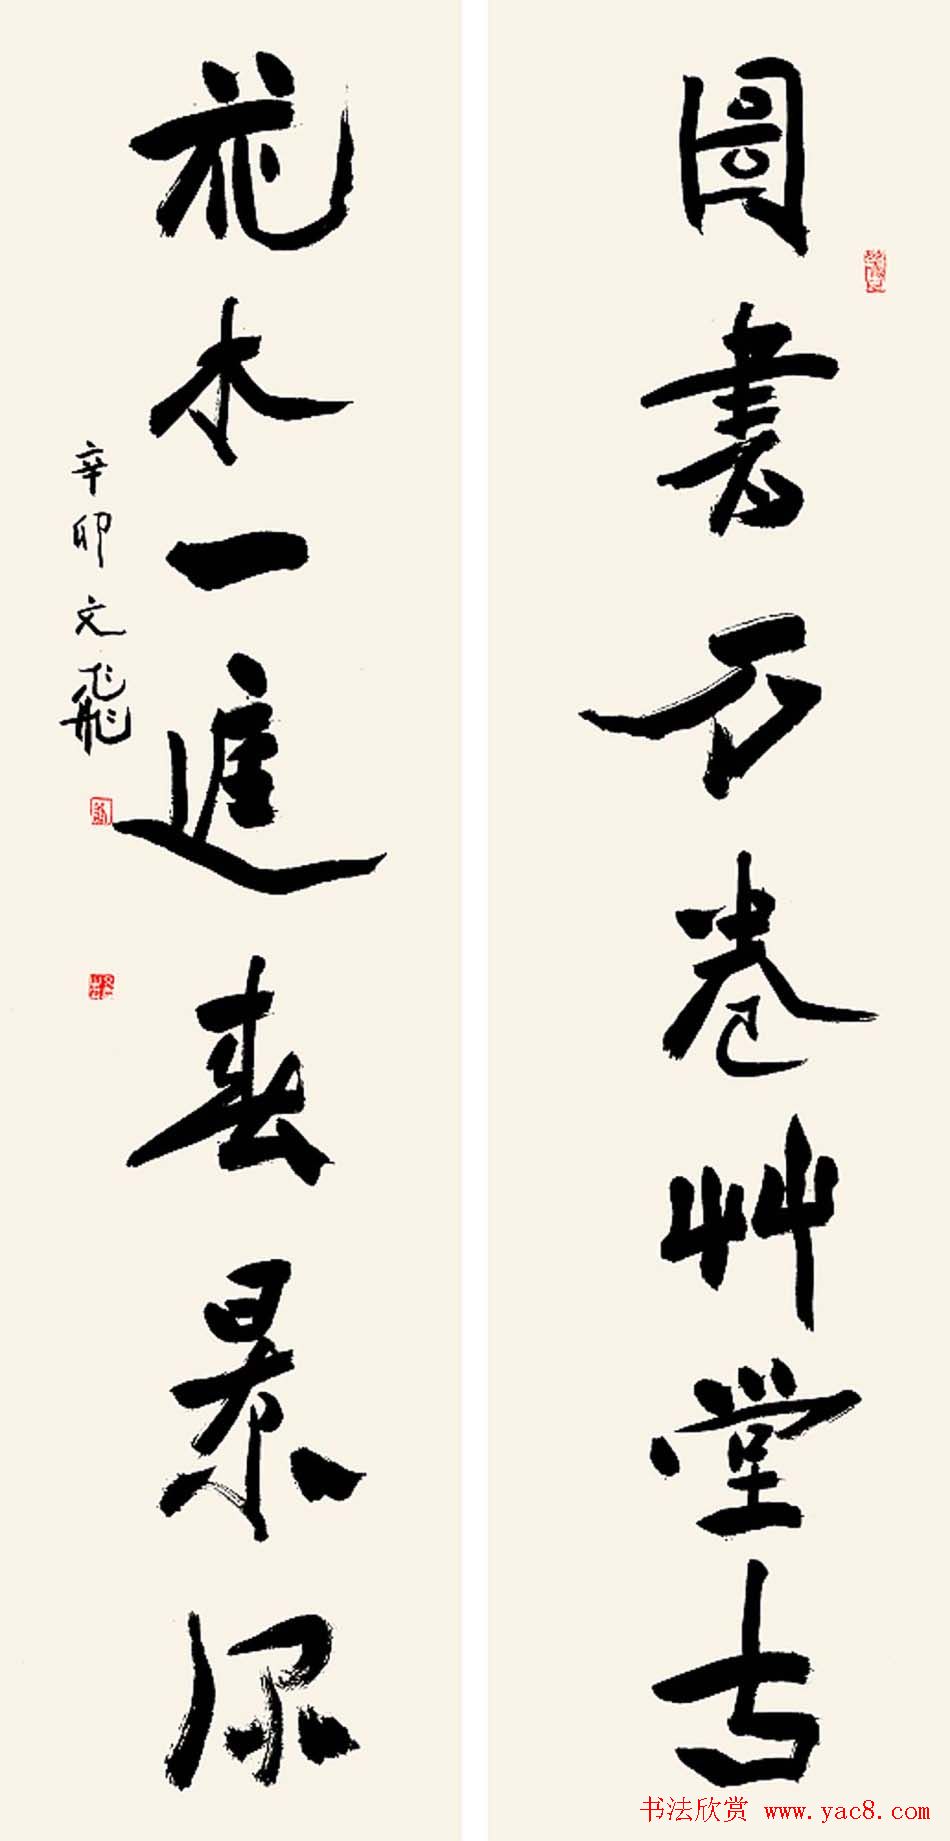 圖書万卷艸堂古
花木一進春景深
辛卯文飛
书法欣赏 www.yac8.com